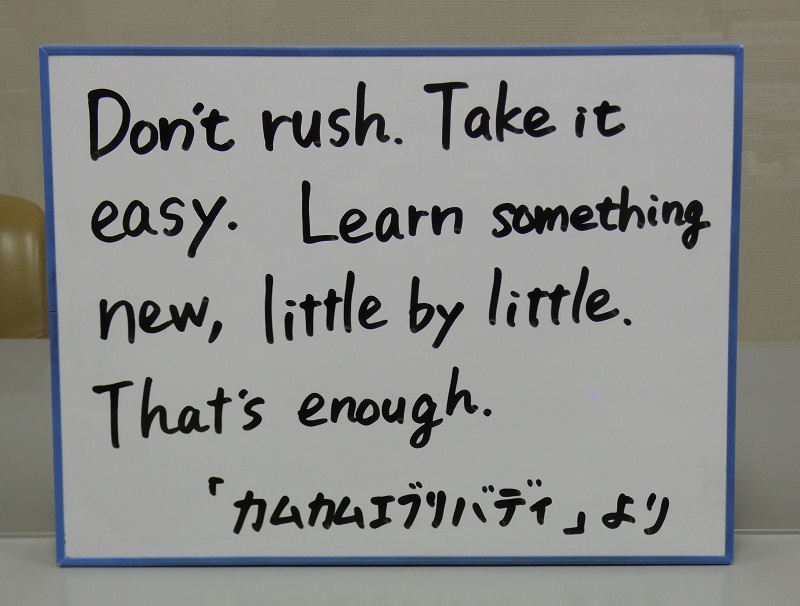 Don't rush. Take it
easy. Learn something
new, little by little.
That's enough.
「カムカムエブリバディ」より